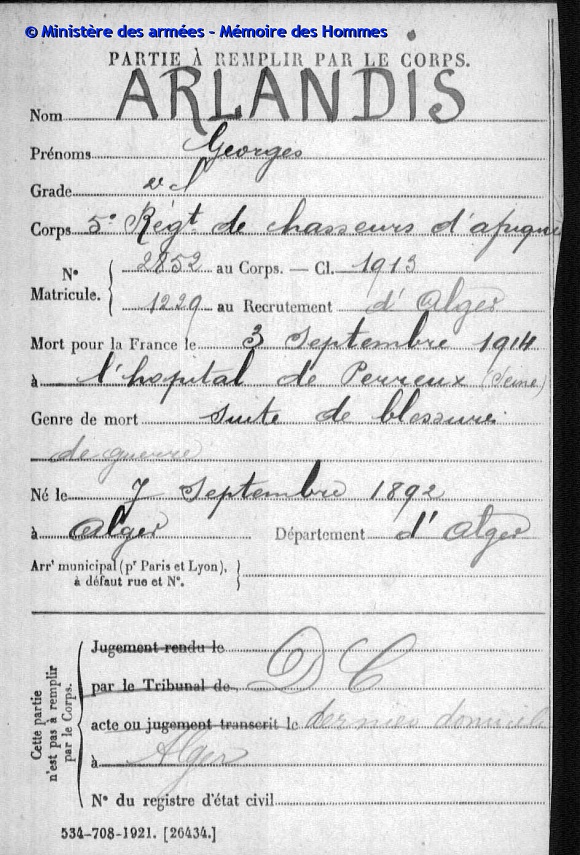 © Ministère des armées - Mémoire des Hommes
PARTIE À REMPLIR PAR LE CORPS.
Nom ARLANDIS
Prénoms Georges
Grade
Corps 5e Régt. de chasseurs d'afrique
N° Matricule. { 2852 au Corps. — Cl. 1913
1229 au Recrutement d'Alger
Mort pour la France le 3 Septembre 1914
à l'hopital de Perreux (Seine)
Genre de mort Suite de blessures
de guerre
Né le 7 Septembre 1892
à Alger Département d'Alger
Arr' municipal (pr Paris et Lyon), }
à défaut rue et N°.
Cette partie n'est pas à remplir par le Corps. {
Jugement rendu le D C
par le Tribunal de
acte ou jugement transcrit le dernier domicile
à Alger
N° du registre d'état civil
534-708-1921. [26434.]